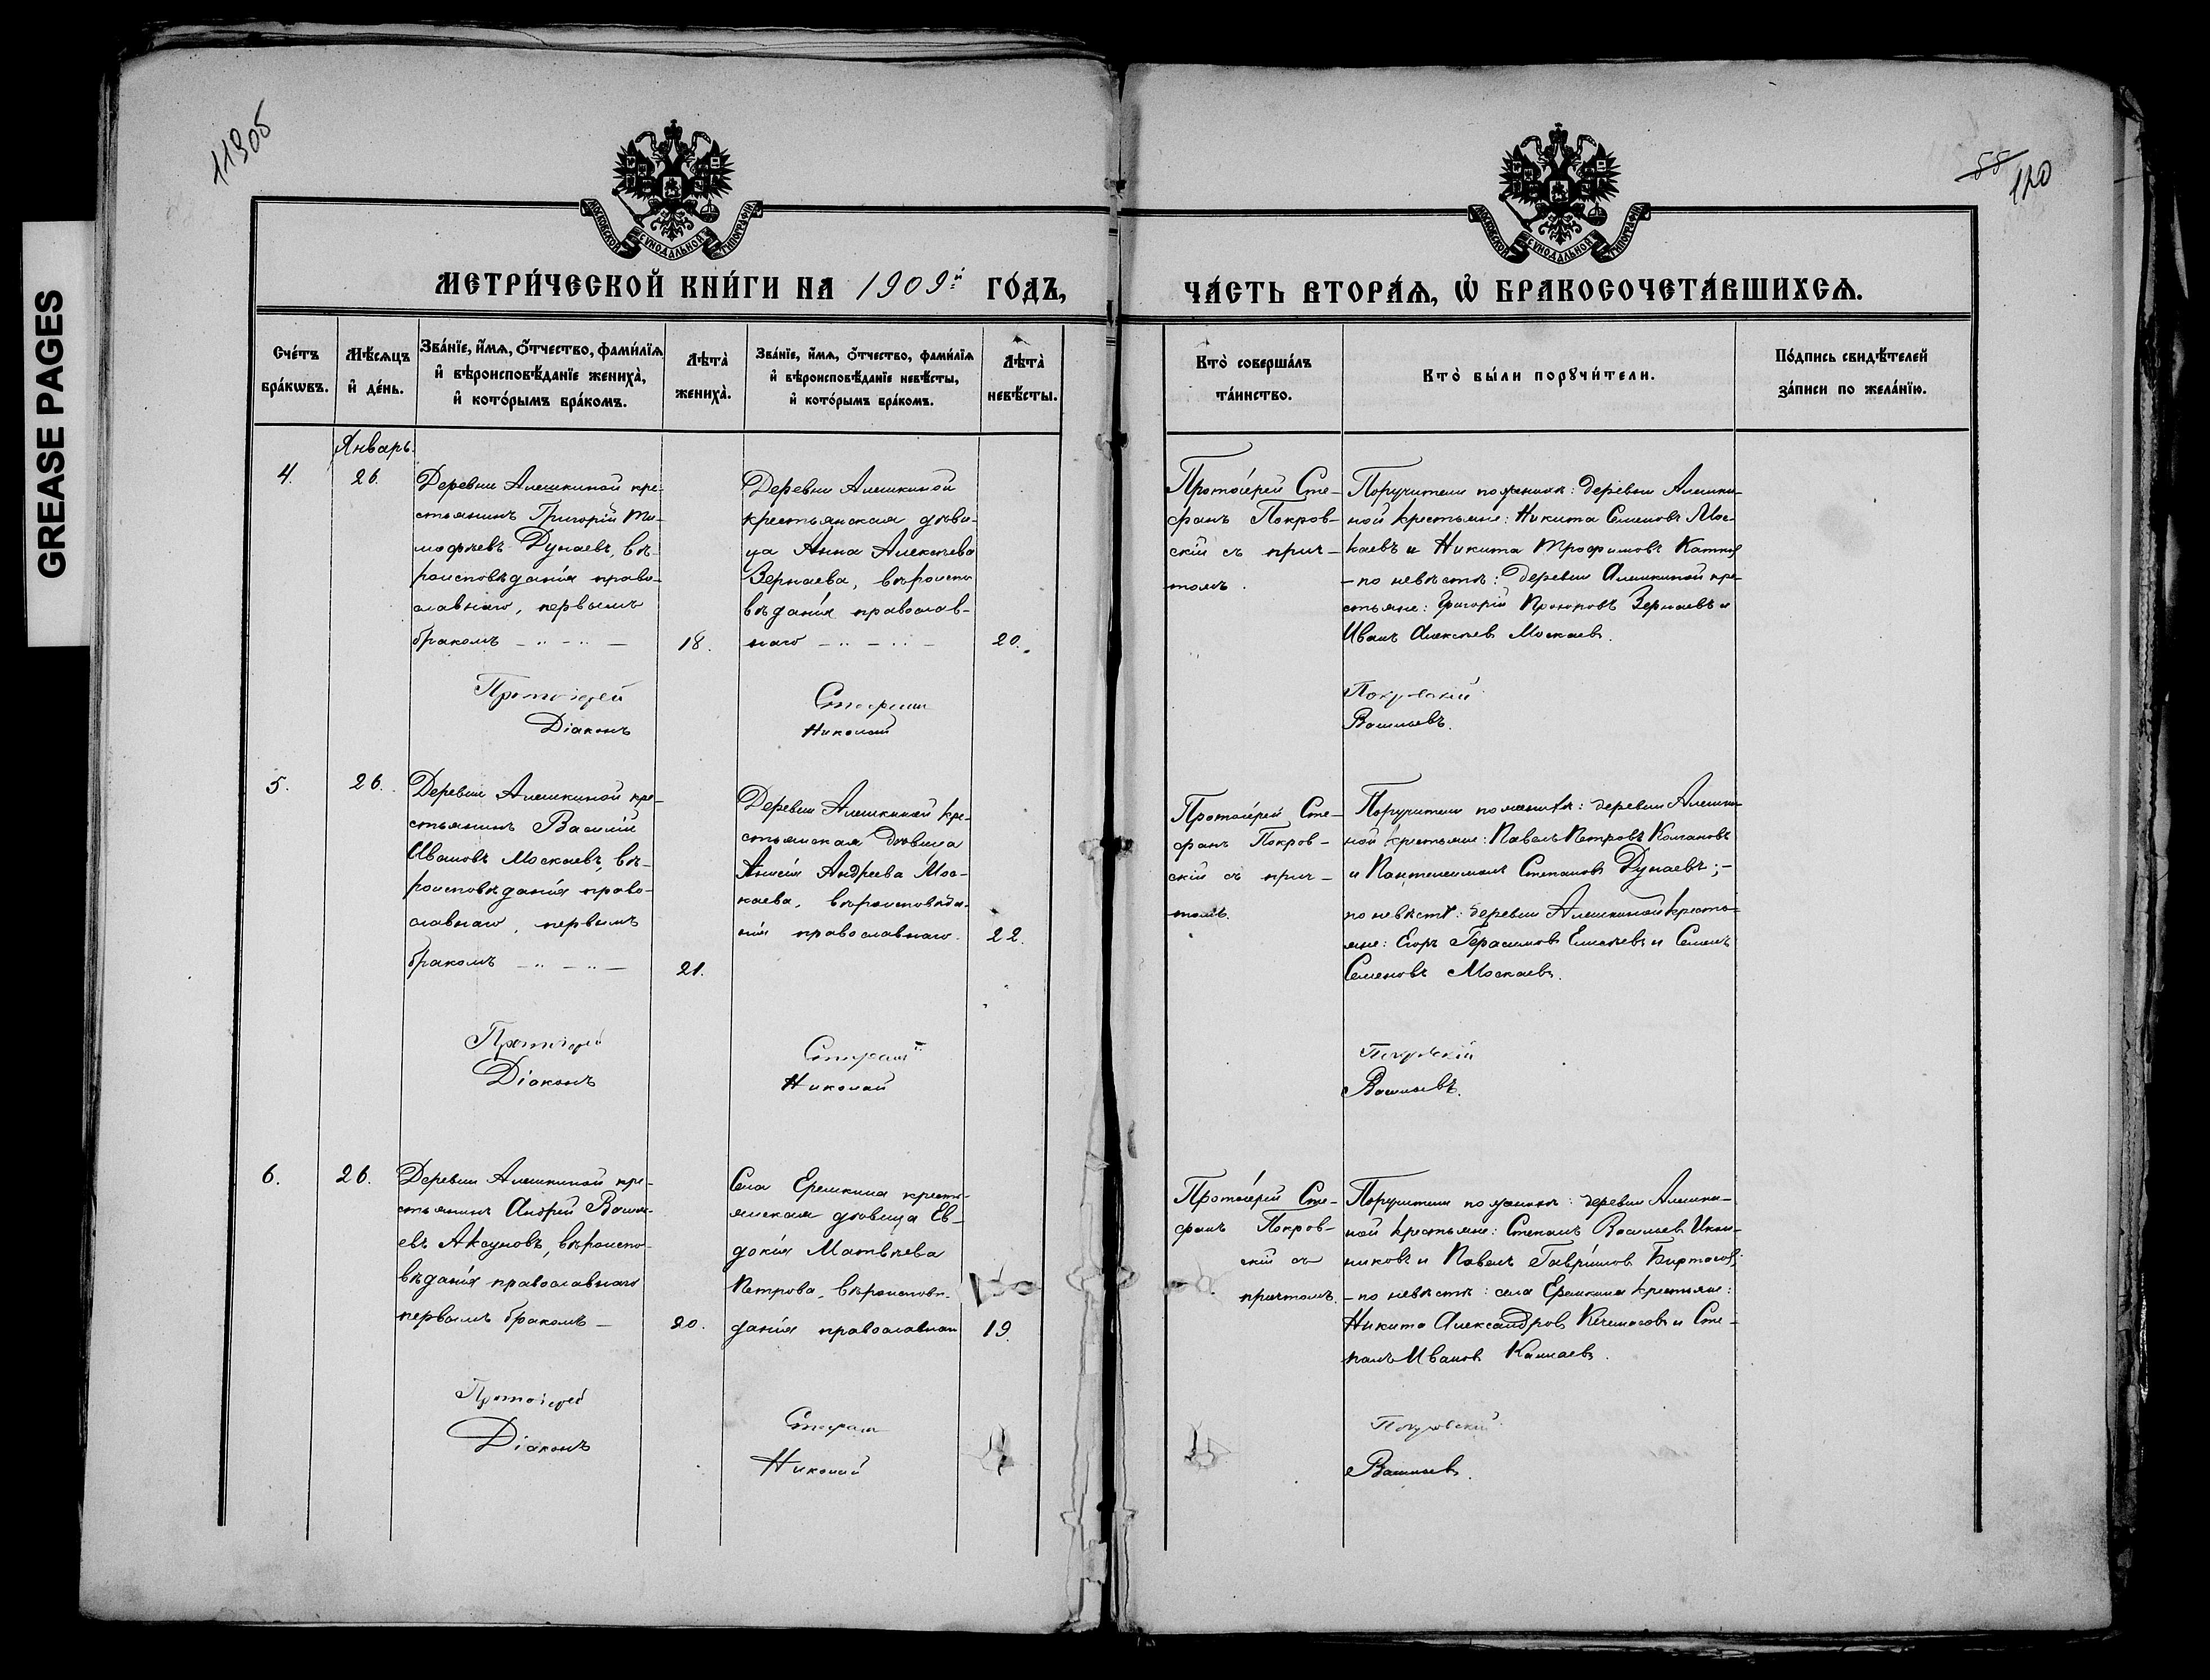 GREASE PAGES
119об
55
120
МОСКОВСКОЙ СѴНОДАЛЬНОЙ ТИПОГРАФІИ
МОСКОВСКОЙ СѴНОДАЛЬНОЙ ТИПОГРАФІИ
МЕТРИ́ЧЕСКОЙ КНИ́ГИ НА 1909й ГО́ДЪ,
ЧА́СТЬ ВТОРА́Ѧ, Ѡ҆ БРАКОСОЧЕТА́ВШИХСѦ.
Сче́тъ бра́кѡвъ.
Мѣ́сѧцъ и҆ де́нь.
Зва́нїе, и҆́мѧ, ѻ҆́тчество, фами́лїѧ
и҆ вѣроисповѣ́данїе жениха̀,
и҆ кото́рымъ бра́комъ.
Лѣта̀ жениха̀.
Зва́нїе, и҆́мѧ, ѻ҆́тчество, фами́лїѧ
и҆ вѣроисповѣ́данїе невѣ́сты,
и҆ кото́рымъ бра́комъ.
Лѣта̀ невѣ́сты.
Кто̀ соверша́лъ та́инство.
Кто̀ бы́ли порꙋчи́тели.
По́дпись свидѣ́телей
за́писи по жела́нїю.
Январь.
4.
26.
Деревни Алешкиной кре-
стьянинъ Григорій Ти-
мофѣевъ Дунаевъ, вѣ-
роисповѣданія право-
славнаго, первымъ
бракомъ
18.
Деревни Алешкиной
крестьянская дѣви-
ца Анна Алексѣева
Зернаева, вѣроиспо
вѣданія православ-
наго
20.
Протоіерей Сте-
фанъ Покров-
скій съ прич-
томъ.
Поручители по женихѣ: деревни Алешки-
ной крестьяне: Никита Семеновъ Мос-
каевъ и Никита Трофимовъ
- по невѣстѣ: деревни Алешкиной кре-
стьяне: Григорій Зернаевъ и
Иванъ Алексѣевъ Москаевъ.
Протоіерей Стефанъ Покровскій
Діаконъ Николай Васильевъ.
5.
26.
Деревни Алешкиной кре-
стьянинъ Василій
Ивановъ Москаевъ, вѣ-
роисповѣданія право-
славнаго, первымъ
бракомъ
21.
Деревни Алешкиной кре-
стьянская дѣвица
Андреева Мос-
каева, вѣроисповѣда-
нія православнаго.
22.
Протоіерей Сте-
фанъ Покров-
скій съ прич-
томъ.
Поручители по женихѣ: деревни Алешки-
ной крестьяне: Павелъ Петровъ
и Пантелеимонъ Степановъ Дунаевъ; -
по невѣстѣ: деревни Алешкиной крестья-
яне: Егоръ Герасимовъ Елисѣевъ и Семенъ
Семеновъ Москаевъ.
Протоіерей Стефанъ Покровскій
Діаконъ Николай Васильевъ.
6.
26.
Деревни Алешкиной кре-
стьянинъ Андрей Василь-
евъ Аксуновъ, вѣроиспо-
вѣданія православнаго
первымъ бракомъ
20.
Села Еремкина кресть-
янская дѣвица Ев-
докія Матвѣева
Петрова, вѣроисповѣ-
данія православнаго
19.
Протоіерей Сте-
фанъ Покров-
скій съ
причтомъ.
Поручители по женихѣ: деревни Алешки-
ной крестьяне: Степанъ Васильевъ
и Павелъ Гавріиловъ
- по невѣстѣ: села Еремкина крестьяне:
Никита Александровъ и Сте-
панъ Ивановъ
Протоіерей Стефанъ Покровскій
Діаконъ Николай Васильевъ.